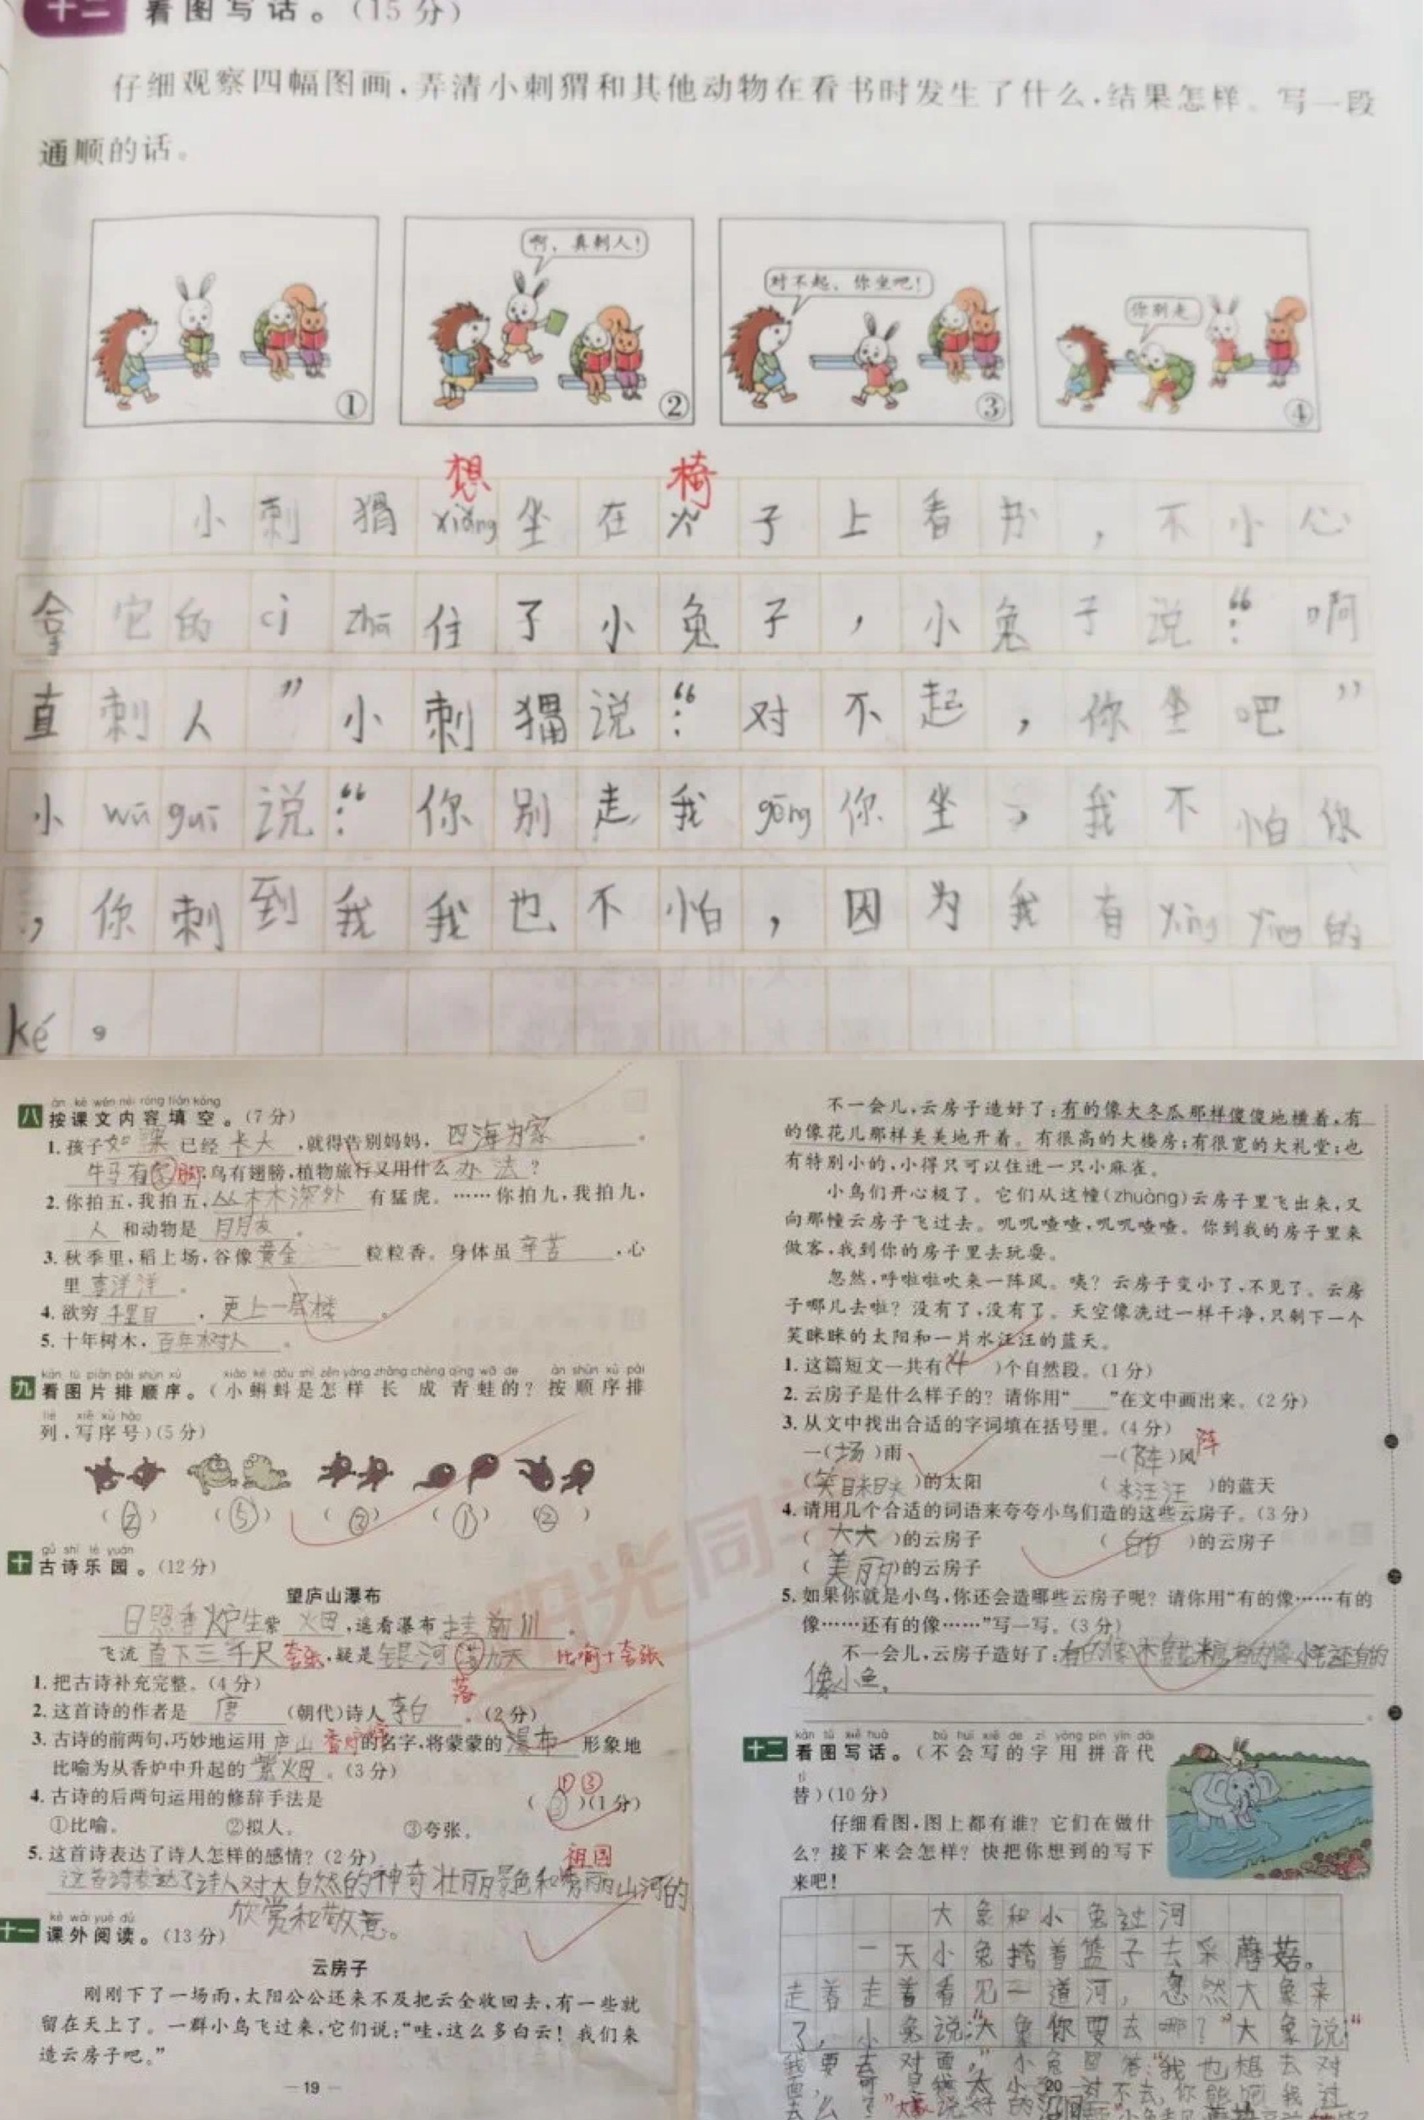 十二 看图写话。(15分)
仔细观察四幅图画,弄清小刺猬和其他动物在看书时发生了什么,结果怎样。写一段
通顺的话。
啊,真刺人!
对不起,你坐吧!
你别走
① ② ③ ④
想 椅
小刺猬xiǎng坐在 子上看书,不小心
拿它的cì zhā住了小兔子,小兔子说:“啊
直刺人”小刺猬说:“对不起,你坐吧”
小wū guī说:“你别走我gōng你坐,我不怕你
,你刺到我我也不怕,因为我有yìng yìng的
ké。
àn kè wén nèi róng tián kòng
八 按课文内容填空。(7分)
1.孩子如果已经长大,就得告别妈妈,四海为家。
牛马有脚,鸟有翅膀,植物旅行又用什么办法?
2.你拍五,我拍五,丛林深处有猛虎。……你拍九,我拍九,
人和动物是朋友。
3.秋季里,稻上场,谷像黄金粒粒香。身体虽辛苦,心
里喜洋洋。
4.欲穷千里目,更上一层楼。
5.十年树木,百年树人。
kàn tú piàn pái shùn xù xiǎo kē dǒu shì zěn yàng zhǎng chéng qīng wā de àn shùn xù pái
九 看图片排顺序。(小蝌蚪是怎样长成青蛙的?按顺序排
liè xiě xù hào
列,写序号)(5分)
(②) (⑤) (②) (①) (②)
gǔ shī lè yuán
十 古诗乐园。(12分)
望庐山瀑布
日照香炉生紫烟,遥看瀑布挂前川。
飞流直下三千尺夸张,疑是银河落九天 比喻+夸张
落
1.把古诗补充完整。(4分)
2.这首诗的作者是唐(朝代)诗人李白。(2分)
3.古诗的前两句,巧妙地运用庐山香炉的名字,将蒙蒙的瀑布形象地
比喻为从香炉中升起的紫烟。(3分)
①③
4.古诗的后两句运用的修辞手法是(③)(1分)
①比喻。 ②拟人。 ③夸张。
5.这首诗表达了诗人怎样的感情?(2分) 祖国
这首诗表达了诗人对大自然的神奇壮丽景色和秀丽山河的
欣赏和敬意。
kè wài yuè dú
十一 课外阅读。(13分)
云房子
刚刚下了一场雨,太阳公公还来不及把云全收回去,有一些就
留在天上了。一群小鸟飞过来,它们说:“哇,这么多白云!我们来
造云房子吧。”
—19—
不一会儿,云房子造好了:有的像大冬瓜那样傻傻地横着,有
的像花儿那样美美地开着。有很高的大楼房;有很宽的大礼堂;也
有特别小的,小得只可以住进一只小麻雀。
小鸟们开心极了。它们从这幢(zhuàng)云房子里飞出来,又
向那幢云房子飞过去。叽叽喳喳,叽叽喳喳。你到我的房子里来
做客,我到你的房子里去玩耍。
忽然,呼啦啦吹来一阵风。咦?云房子变小了,不见了。云房
子哪儿去啦?没有了,没有了。天空像洗过一样干净,只剩下一个
笑眯眯的太阳和一片水汪汪的蓝天。
1.这篇短文一共有(4)个自然段。(1分)
2.云房子是什么样子的?请你用“___”在文中画出来。(2分)
3.从文中找出合适的字词填在括号里。(4分)
一(场)雨 一(阵)风 阵
(笑眯眯)的太阳 (水汪汪)的蓝天
4.请用几个合适的词语来夸夸小鸟们造的这些云房子。(3分)
(大大)的云房子 (白白)的云房子
(美丽)的云房子
5.如果你就是小鸟,你还会造哪些云房子呢?请你用“有的像……有的
像……还有的像……”写一写。(3分)
不一会儿,云房子造好了:有的像棉花糖有的像小羊还有的
像小鱼。
kàn tú xiě huà bú huì xiě de zì yòng pīn yīn dài
十二 看图写话。(不会写的字用拼音代
tì
替)(10分)
仔细看图,图上都有谁?它们在做什
么?接下来会怎样?快把你想到的写下
来吧!
大象和小兔过河
一天小兔挎着篮子去采蘑菇。
走着走着看见一道河,忽然大象来
了,小兔说:“大象你要去哪?”大象说“
我要去对面。”小兔回答:“我也想去对
面,可是我太小 过不去,你能 我过
去么?”大象说好的
20